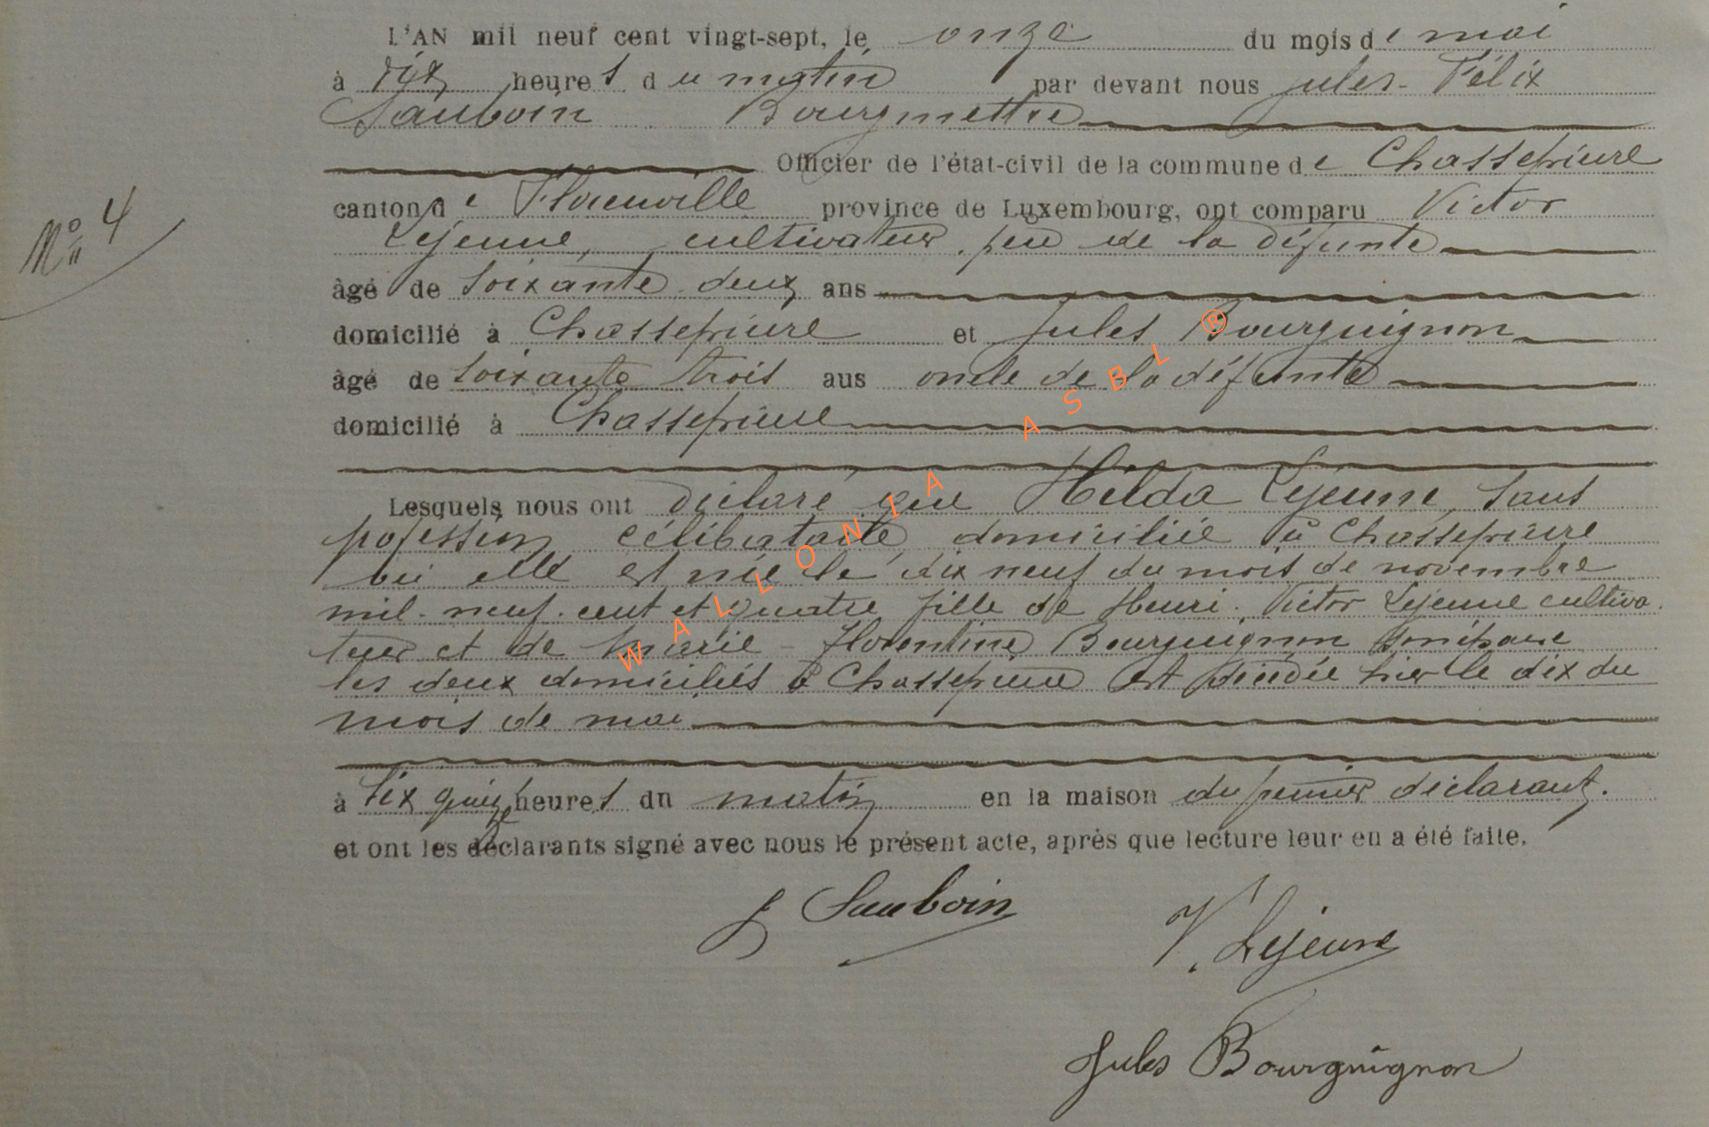 L'AN mil neuf cent vingt-sept, le onze du mois de mai
à dix heures du matin par devant nous Jules-Félix
Sauboin Bourgmettre
Officier de l'état-civil de la commune de Chassepierre
N° 4
canton de Florenville province de Luxembourg, ont comparu Victor
Lejeune, cultivateur père de la défunte
âgé de soixante deux ans
domicilié à Chassepierre et Jules Bourguignon
âgé de soixante trois ans oncle de la défunte
domicilié à Chassepierre
Lesquels nous ont déclaré que Hilda Lejeune, sans
profession célibataire domiciliée à Chassepierre
où elle est née le dix neuf du mois de novembre
mil-neuf-cent et quatre fille de Henri-Victor Lejeune cultiva
teur et de Marie-Florentine Bourguignon son épouse
les deux domiciliés à Chassepierre est décédée hier le dix du
mois de mai
à six heures du matin en la maison du premier déclarant.
et ont les déclarants signé avec nous le présent acte, après que lecture leur en a été faite.
J Sauboin
V. Lejeune
Jules Bourguignon
WALLONIA ASBL ®